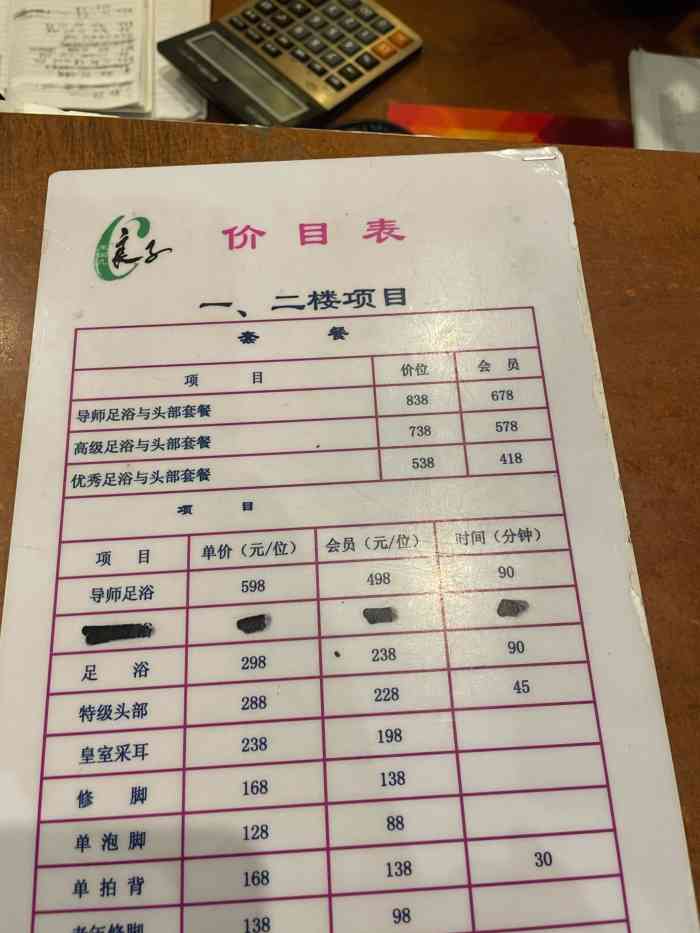 良子
价目表
一、二楼项目
套 餐
项 目 价位 会 员
导师足浴与头部套餐 838 678
高级足浴与头部套餐 738 578
优秀足浴与头部套餐 538 418
项 目
项 目 单价（元/位） 会员（元/位） 时间（分钟）
导师足浴 598 498 90
浴
足 浴 298 238 90
特级头部 288 228 45
皇室采耳 238 198
修 脚 168 138
单泡脚 128 88
单拍背 168 138 30
老年修脚 138 98